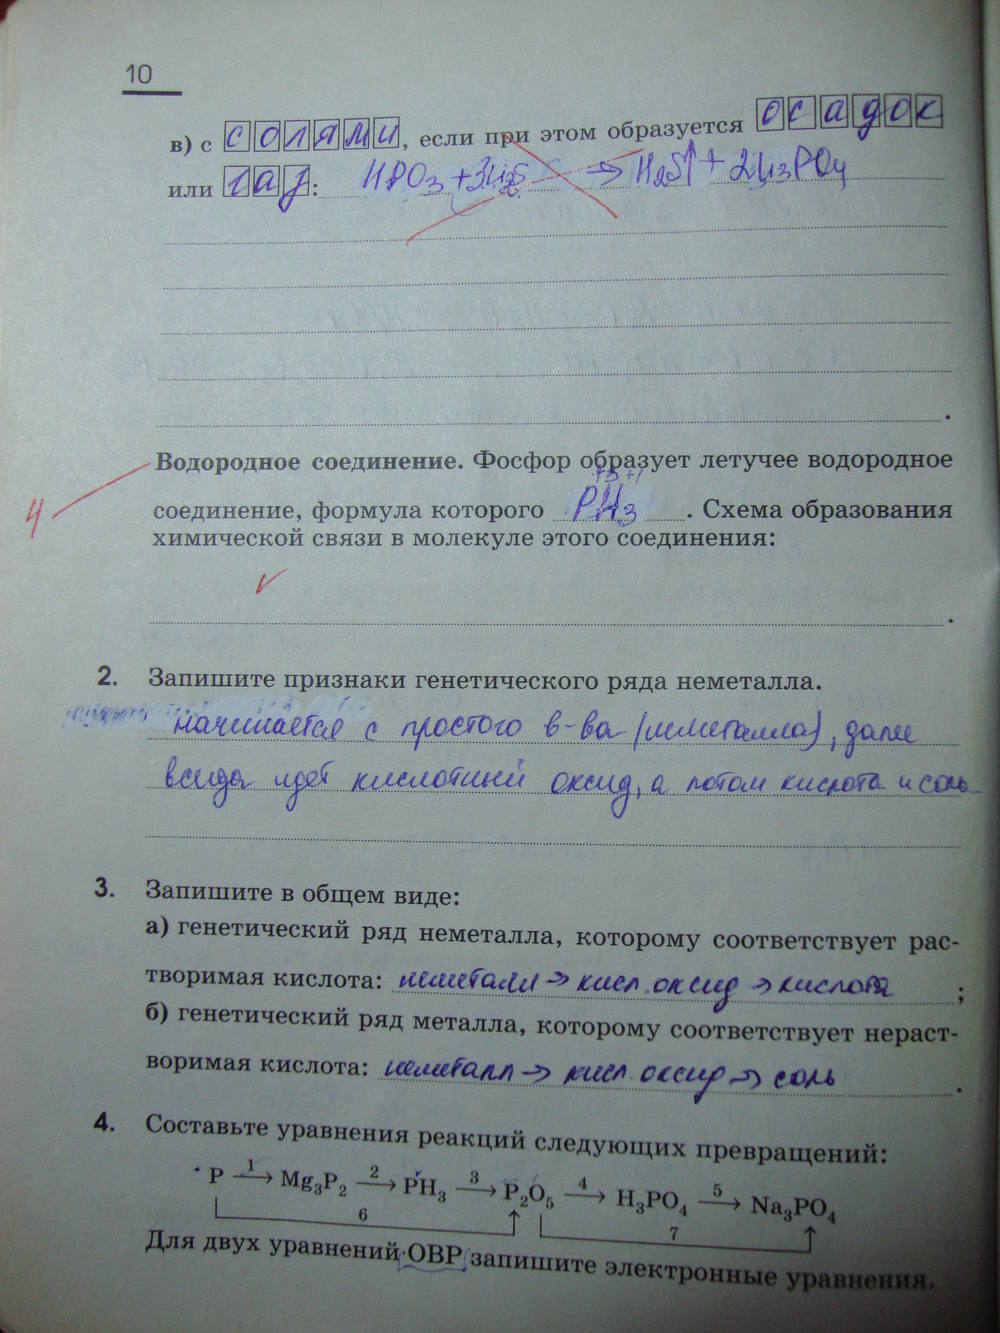 10
в) с солями, если при этом образуется осадок
или газ: HPO₃ + 3Li₂S → H₂S↑ + 2Li₃PO₄
4
Водородное соединение. Фосфор образует летучее водородное
соединение, формула которого PH₃. Схема образования
химической связи в молекуле этого соединения:
2. Запишите признаки генетического ряда неметалла.
начинается с простого в-ва (неметалла), далее
всегда идет кислотный оксид, а потом кислота и соль
3. Запишите в общем виде:
а) генетический ряд неметалла, которому соответствует рас-
творимая кислота: неметалл → кисл. оксид → кислота ;
б) генетический ряд металла, которому соответствует нераст-
воримая кислота: неметалл → кисл. оксид → соль .
4. Составьте уравнения реакций следующих превращений:
P 1→ Mg₃P₂ 2→ PH₃ 3→ P₂O₅ 4→ H₃PO₄ 5→ Na₃PO₄
6 7
Для двух уравнений ОВР запишите электронные уравнения.